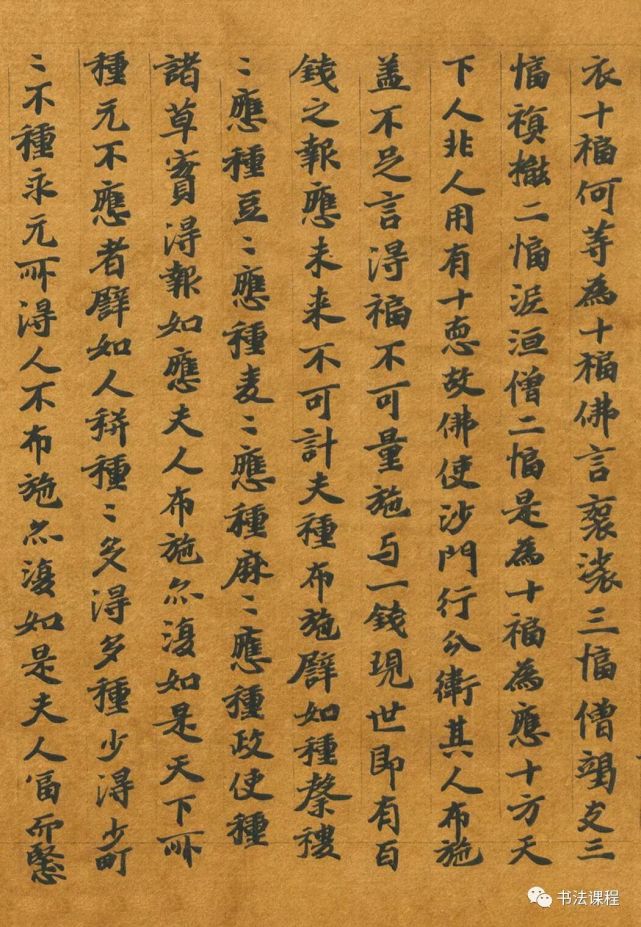 衣十福何等為十福佛言袈裟三愊僧竭支三
愊二愊泥洹僧二愊是為十福為應十方天
下人非人用有十惡故佛使沙門行分衛其人布施
盖不足言得福不可量施与一錢現世即有百
錢之報應未来不可計夫種布施譬如種
〻應種豆〻應種麦〻應種麻〻應種政使種
諸草實得報如應夫人布施尒復如是天下所
種无不應者譬如人耕種〻多得多種少得少町
〻不種永无所得人不布施尒復如是夫人富而慳
书法课程